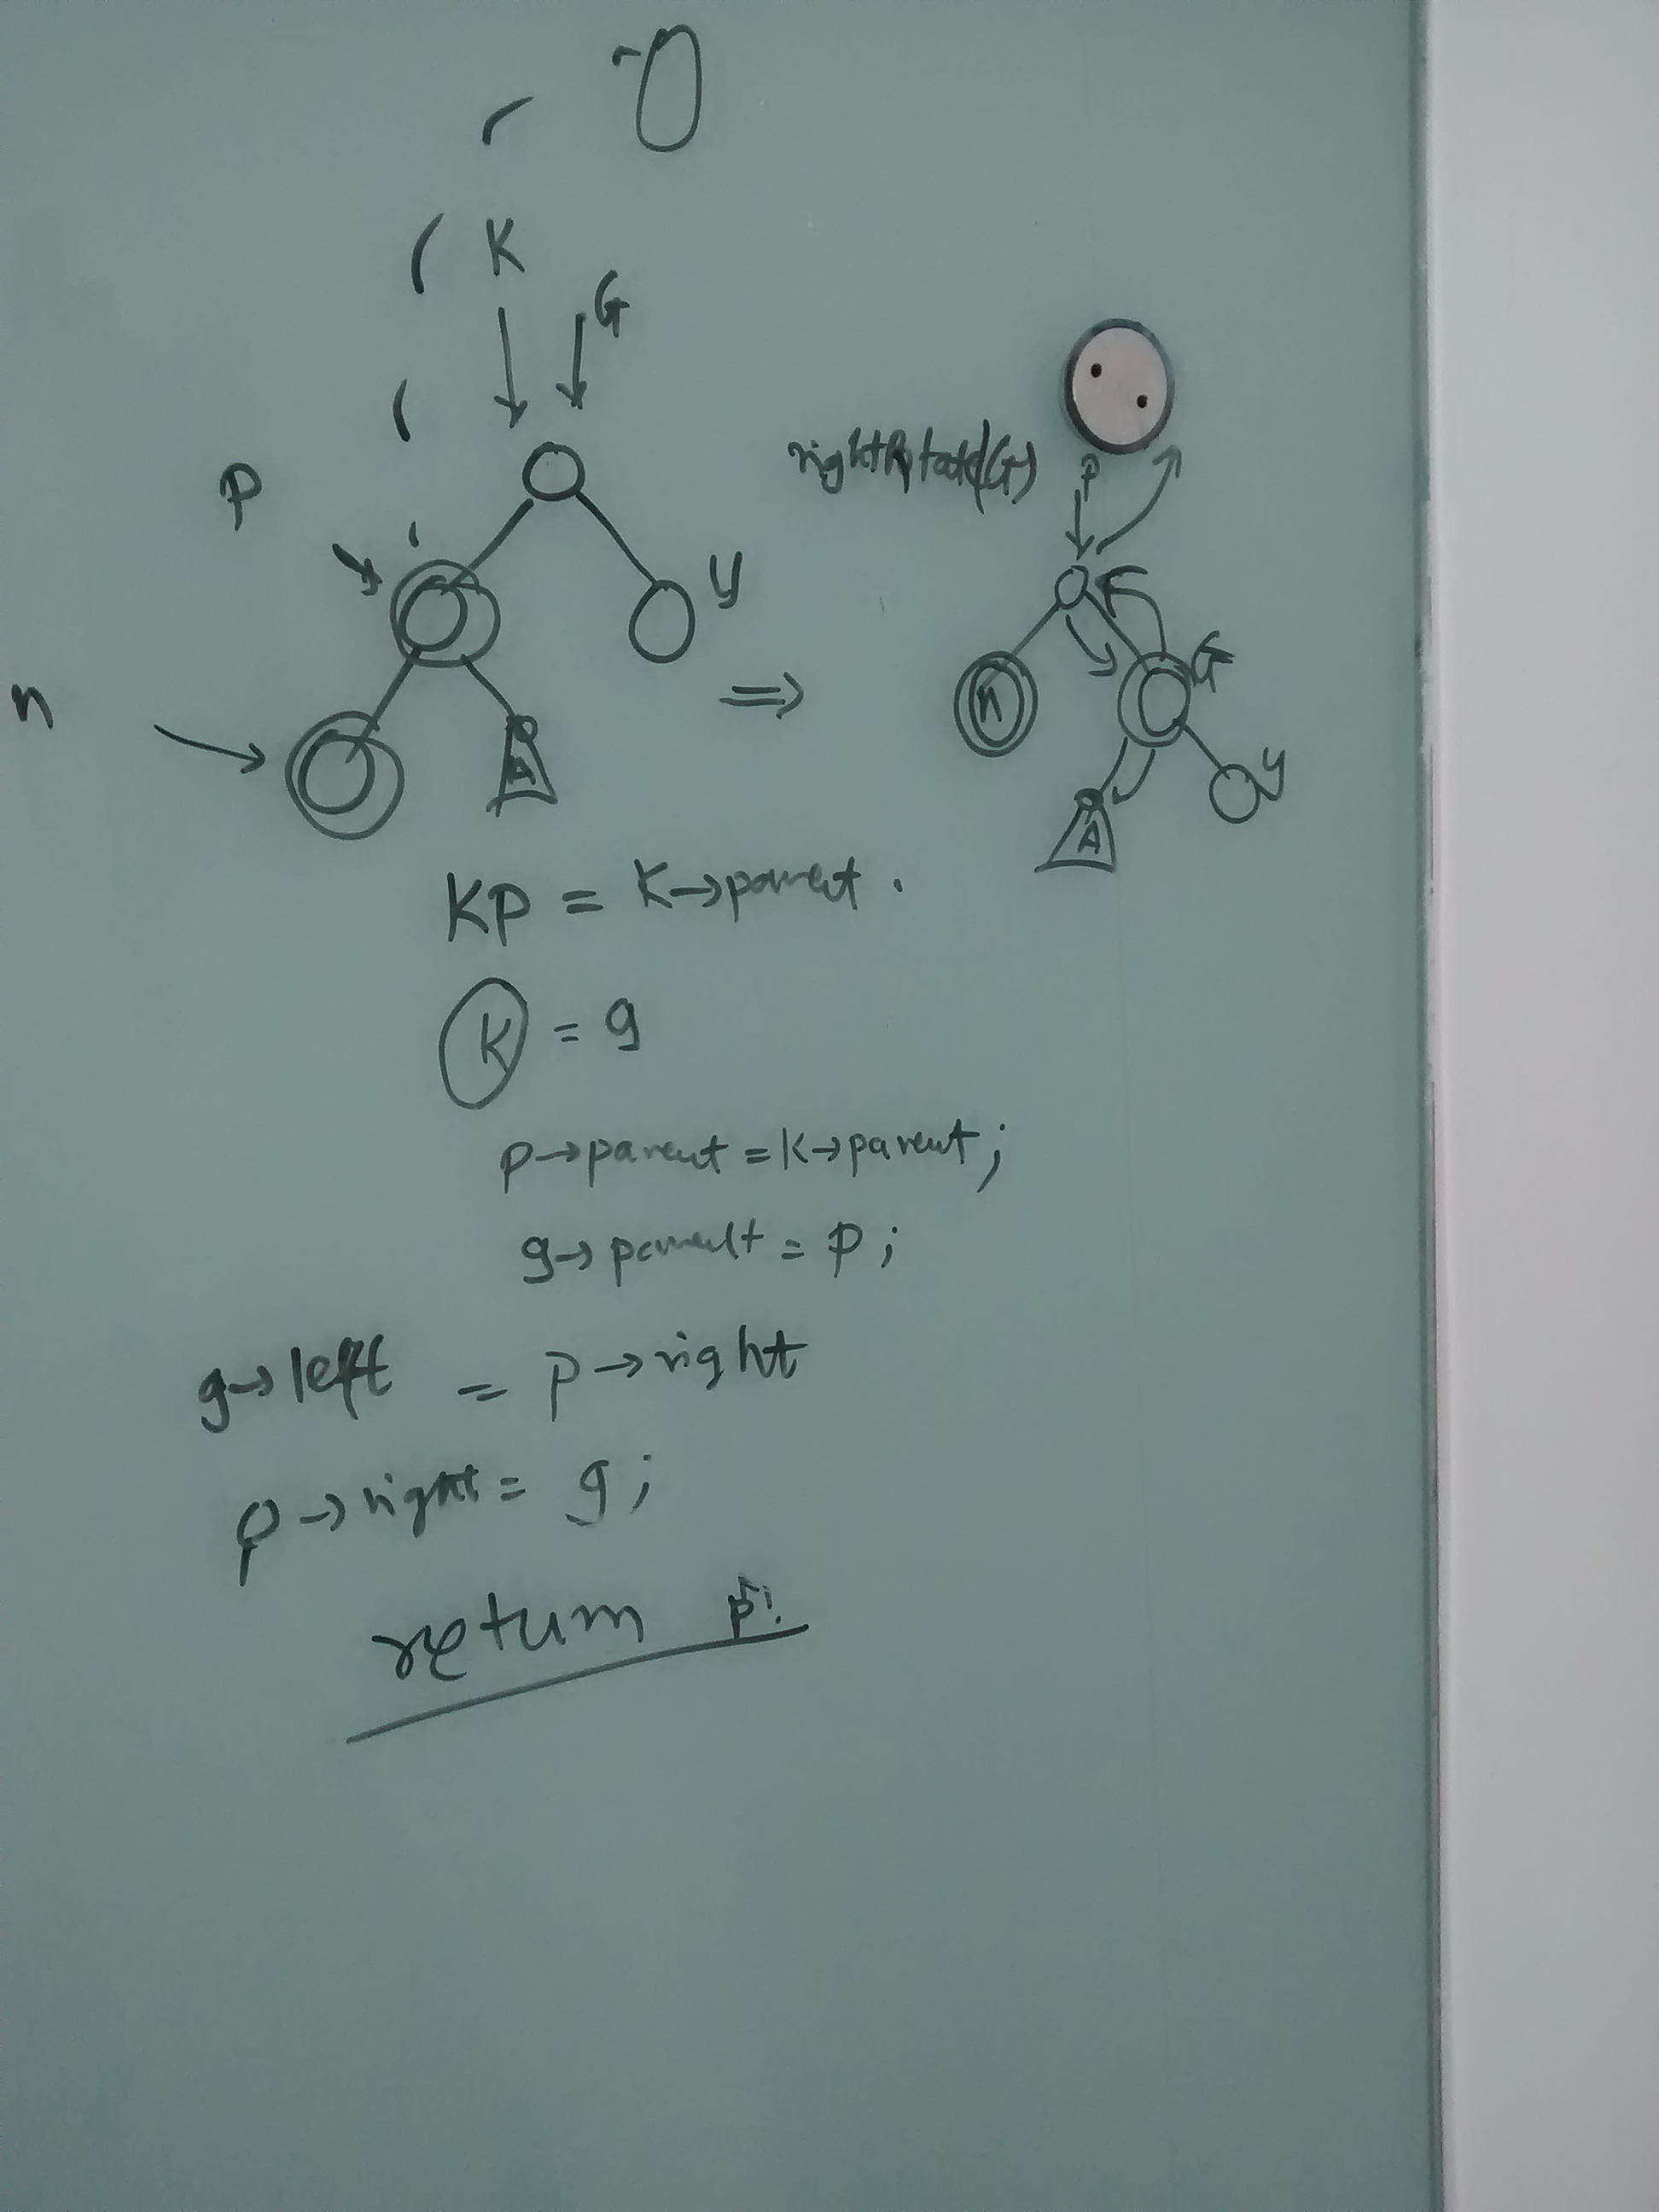 K
G
rightRotate(G)
P
P
y
n
n
G
A
y
A
KP = K→parent.
K = g
p→parent = k→parent;
g→parent = p;
g→left = p→right
p→right = g;
return p;